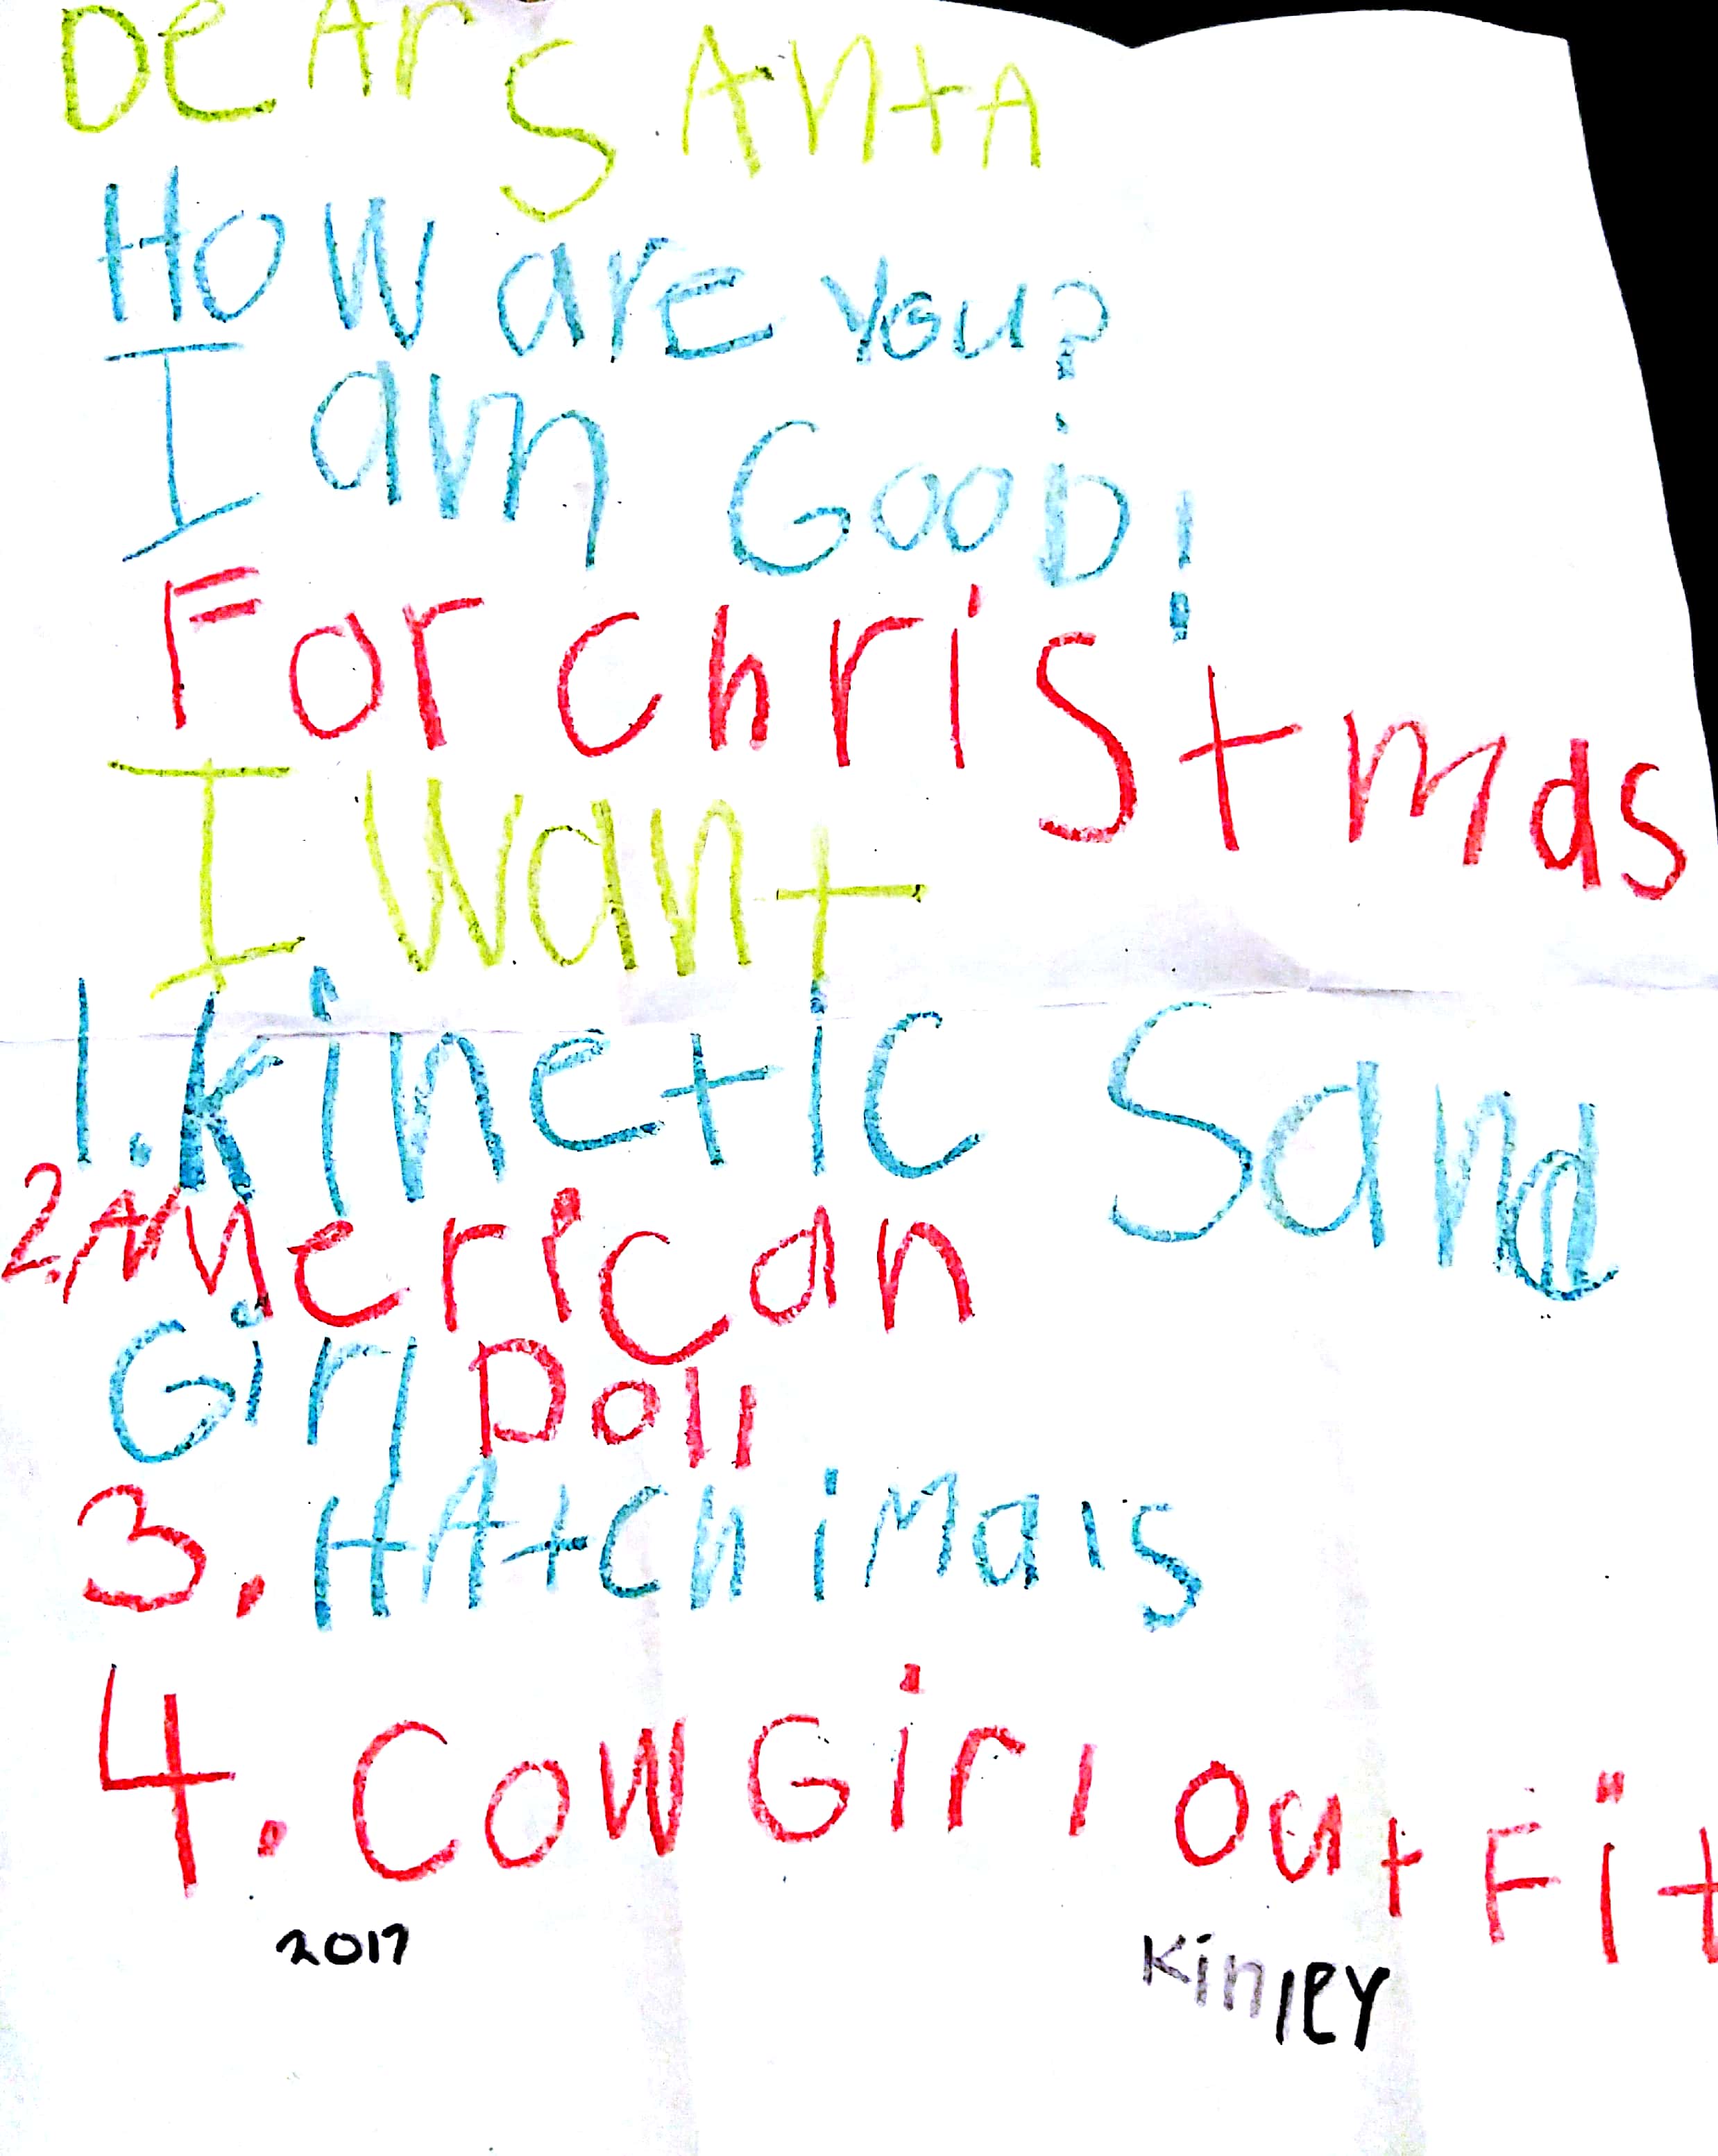 DeAr SAntA
How are You?
I am GooD!
For christmas
I Want
1. kinetic Sand
2. AMerican
Girl Doll
3. HAtchiMals
4. CowGirl outFit
2017 Kinley